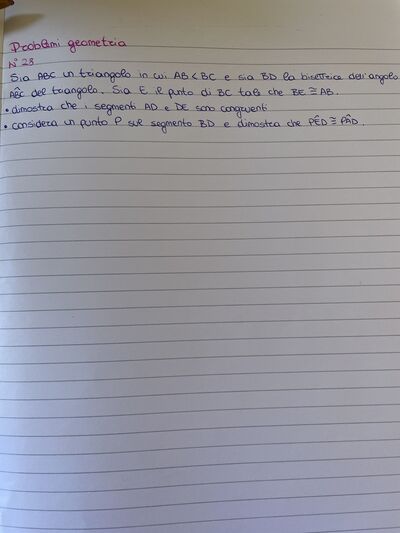 Problemi geometria
N° 23
Sia ABC un triangolo in cui AB < BC e sia BD la bisettrice dell'angolo
AB̂C del triangolo. Sia E il punto di BC tale che BE ≅ AB.
• dimostra che i segmenti AD e DE sono congruenti
• considera un punto P sul segmento BD e dimostra che PÊD ≅ PÂD.